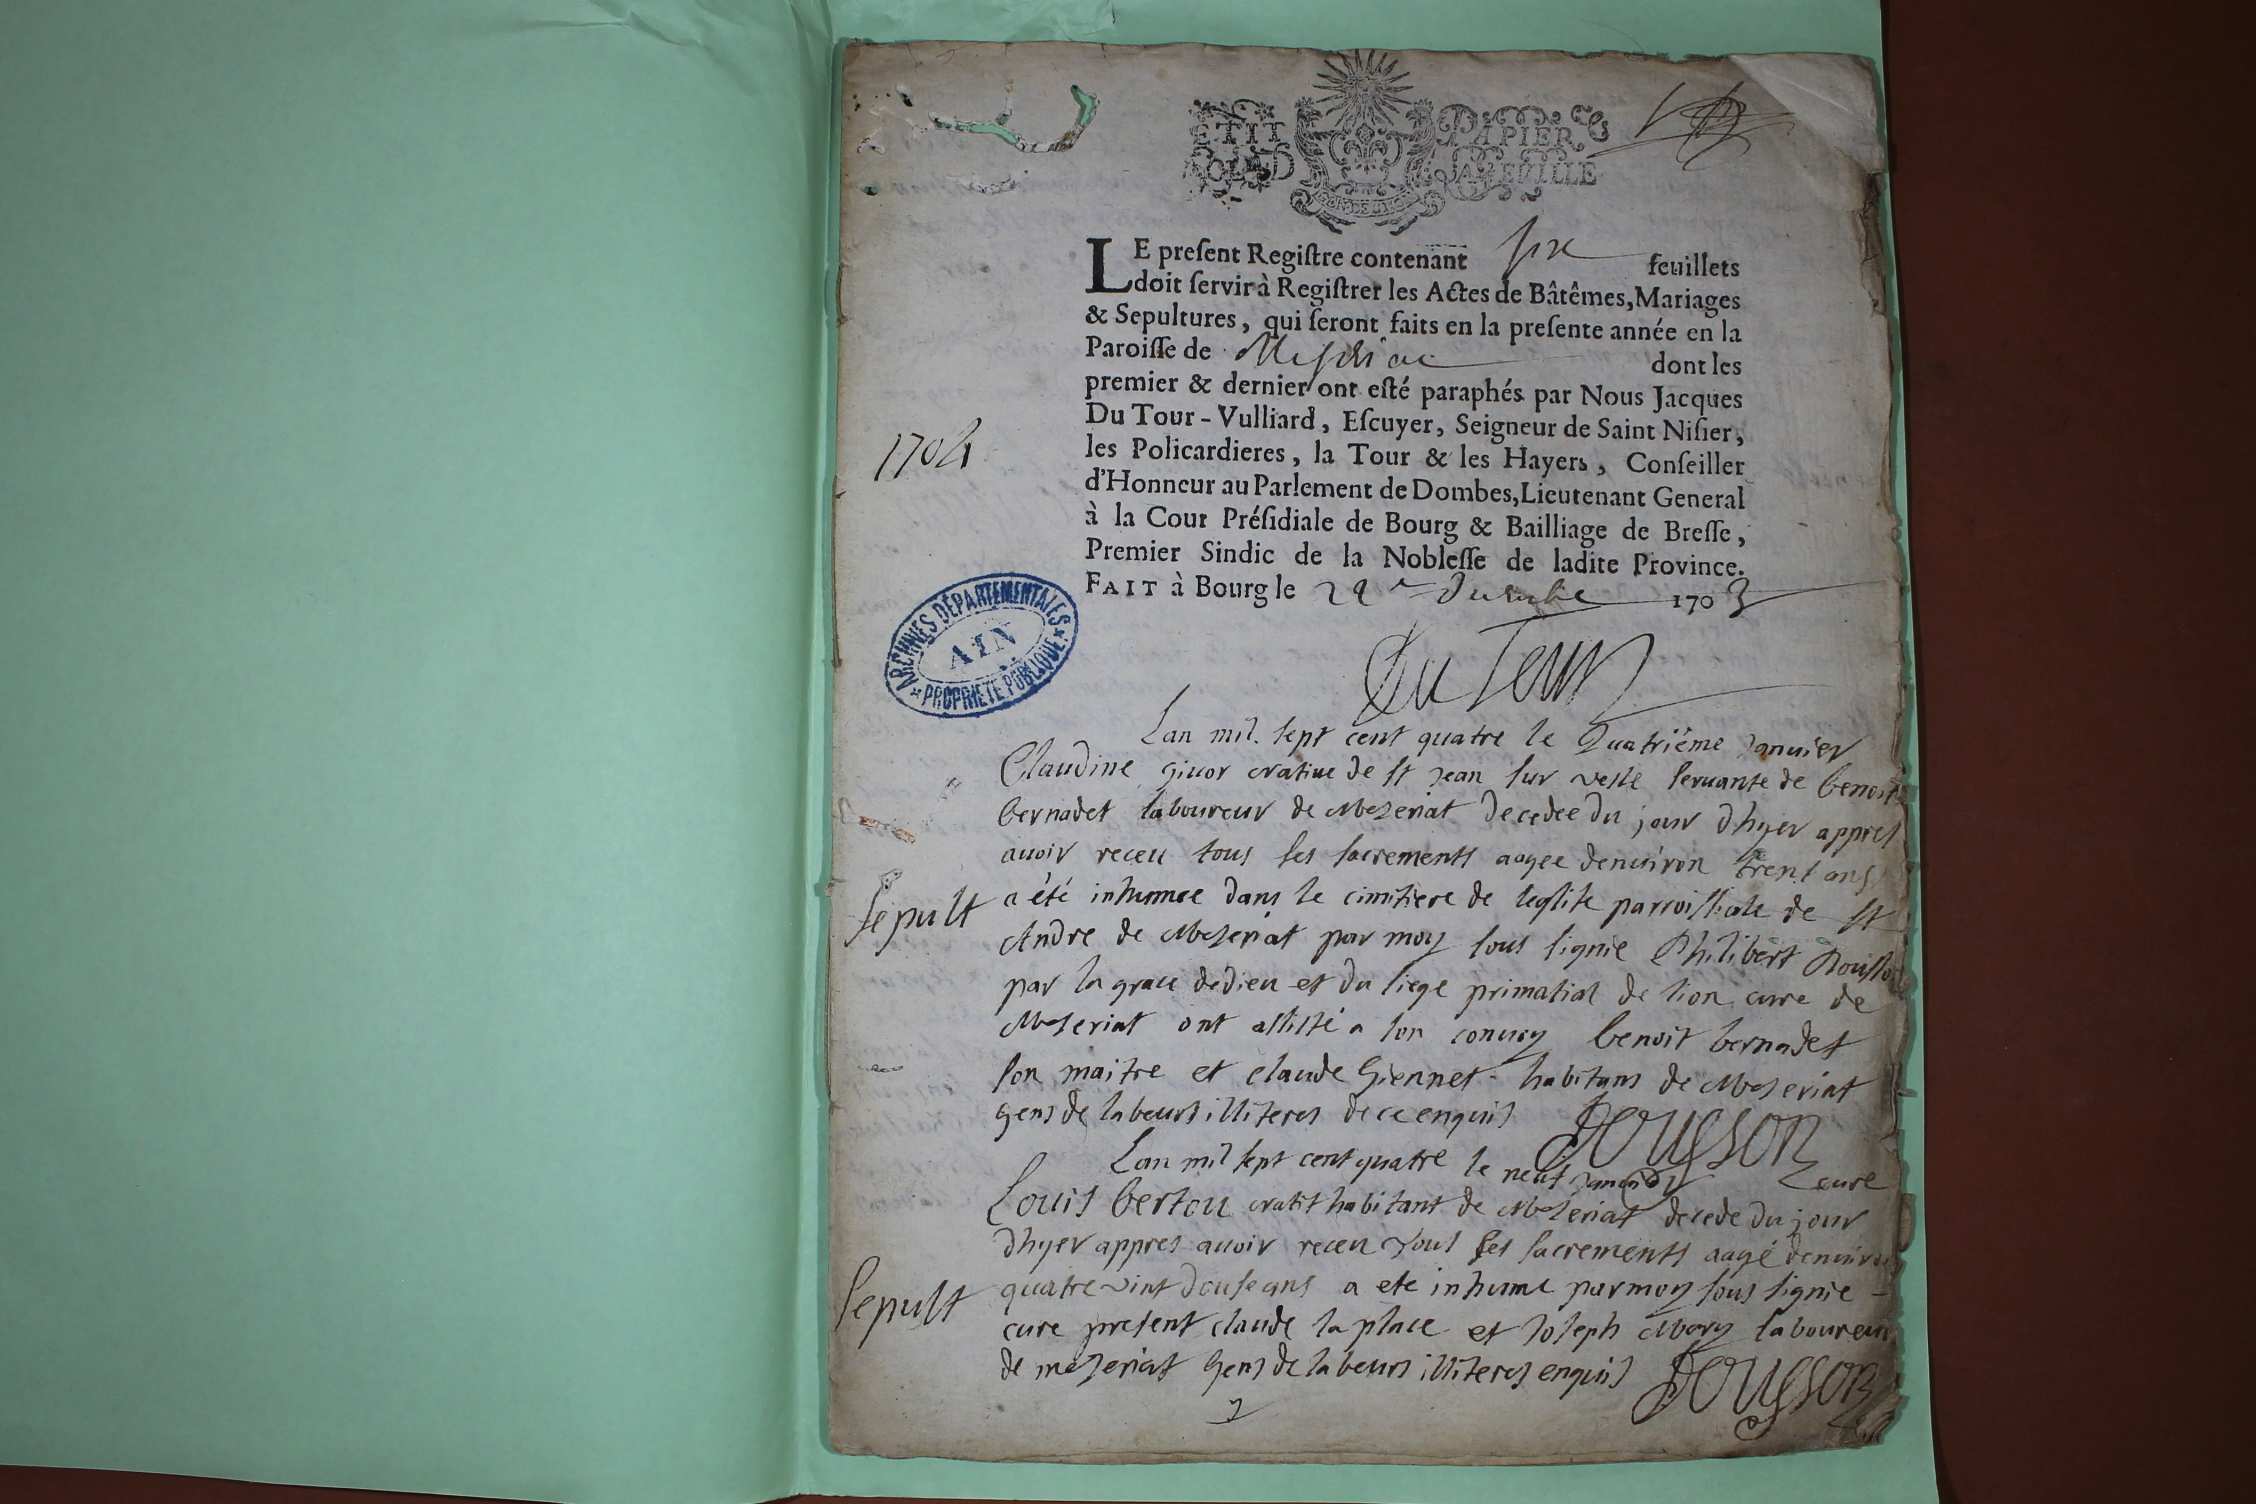 PETIT PAPIER
ROLE D JAVEUILLE
LE preſent Regiſtre contenant six feuillets
doit ſervir à Regiſtrer les Actes de Bâtêmes, Mariages
& Sepultures, qui ſeront faits en la preſente année en la
Paroiſſe de dont les
premier & dernier ont eſté paraphés par Nous Jacques
Du Tour-Vulliard, Eſcuyer, Seigneur de Saint Niſier,
les Policardieres, la Tour & les Hayers, Conſeiller
d'Honneur au Parlement de Dombes, Lieutenant General
à la Cour Préſidiale de Bourg & Bailliage de Breſſe,
Premier Sindic de la Nobleſſe de ladite Province.
FAIT à Bourg le 1703
1704
ARCHIVES DÉPARTEMENTALES
AIN
PROPRIÉTÉ PUBLIQUE
Du Tour
Lan mil sept cent quatre le Quatriême Janvier
Claudine givor de st jean sur vesle servante de benoit
bernadet laboureur de Mezeriat decedee du jour dhyer appres
avoir receu tous ses sacrements aagee denuiron trent ans
Sepult
a été inhumee dans le cimitiere de leglise parroissiale de st
Andre de Mezeriat par moy sous signie Philibert
par la grace dedieu et du siege primatial de lion cure de
Mezeriat ont assisté a son convoy benoit bernadet
son maitre et claude Giennet habitans de Mezeriat
gens de labeurs illiteres de ce enquis
Lan mil sept cent quatre le neuf
cure
Louis bertou habitant de Mezeriat decede du jour
dhyer appres avoir receu tous ses sacrements aagé denuiron
Sepult
quatre vint douse ans a ete inhume par moy sous signie
cure present claude la place et Joseph Mory laboureurs
de mezeriat gens de labeurs illiteres enquis